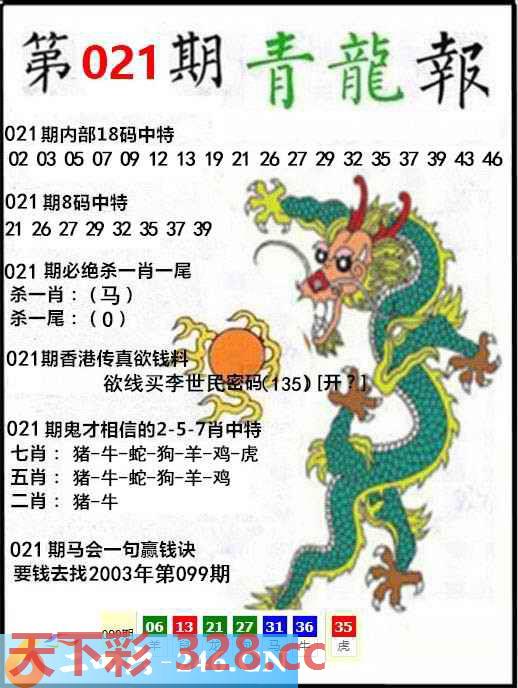 第021期 青龍報
021期内部18码中特
02 03 05 07 09 12 13 19 21 26 27 29 32 35 37 39 43 46
021期8码中特
21 26 27 29 32 35 37 39
021 期必绝杀一肖一尾
杀一肖：（马）
杀一尾：（0）
021期香港传真欲钱料
欲线买李世民密码(135) [开？]
021期鬼才相信的2-5-7肖中特
七肖： 猪-牛-蛇-狗-羊-鸡-虎
五肖： 猪-牛-蛇-狗-羊-鸡
二肖： 猪-牛
021期马会一句赢钱诀
要钱去找2003年第099期
099期 06 13 21 27 31 36 35
羊 鼠 龙 牛 虎
天下彩-328.cc